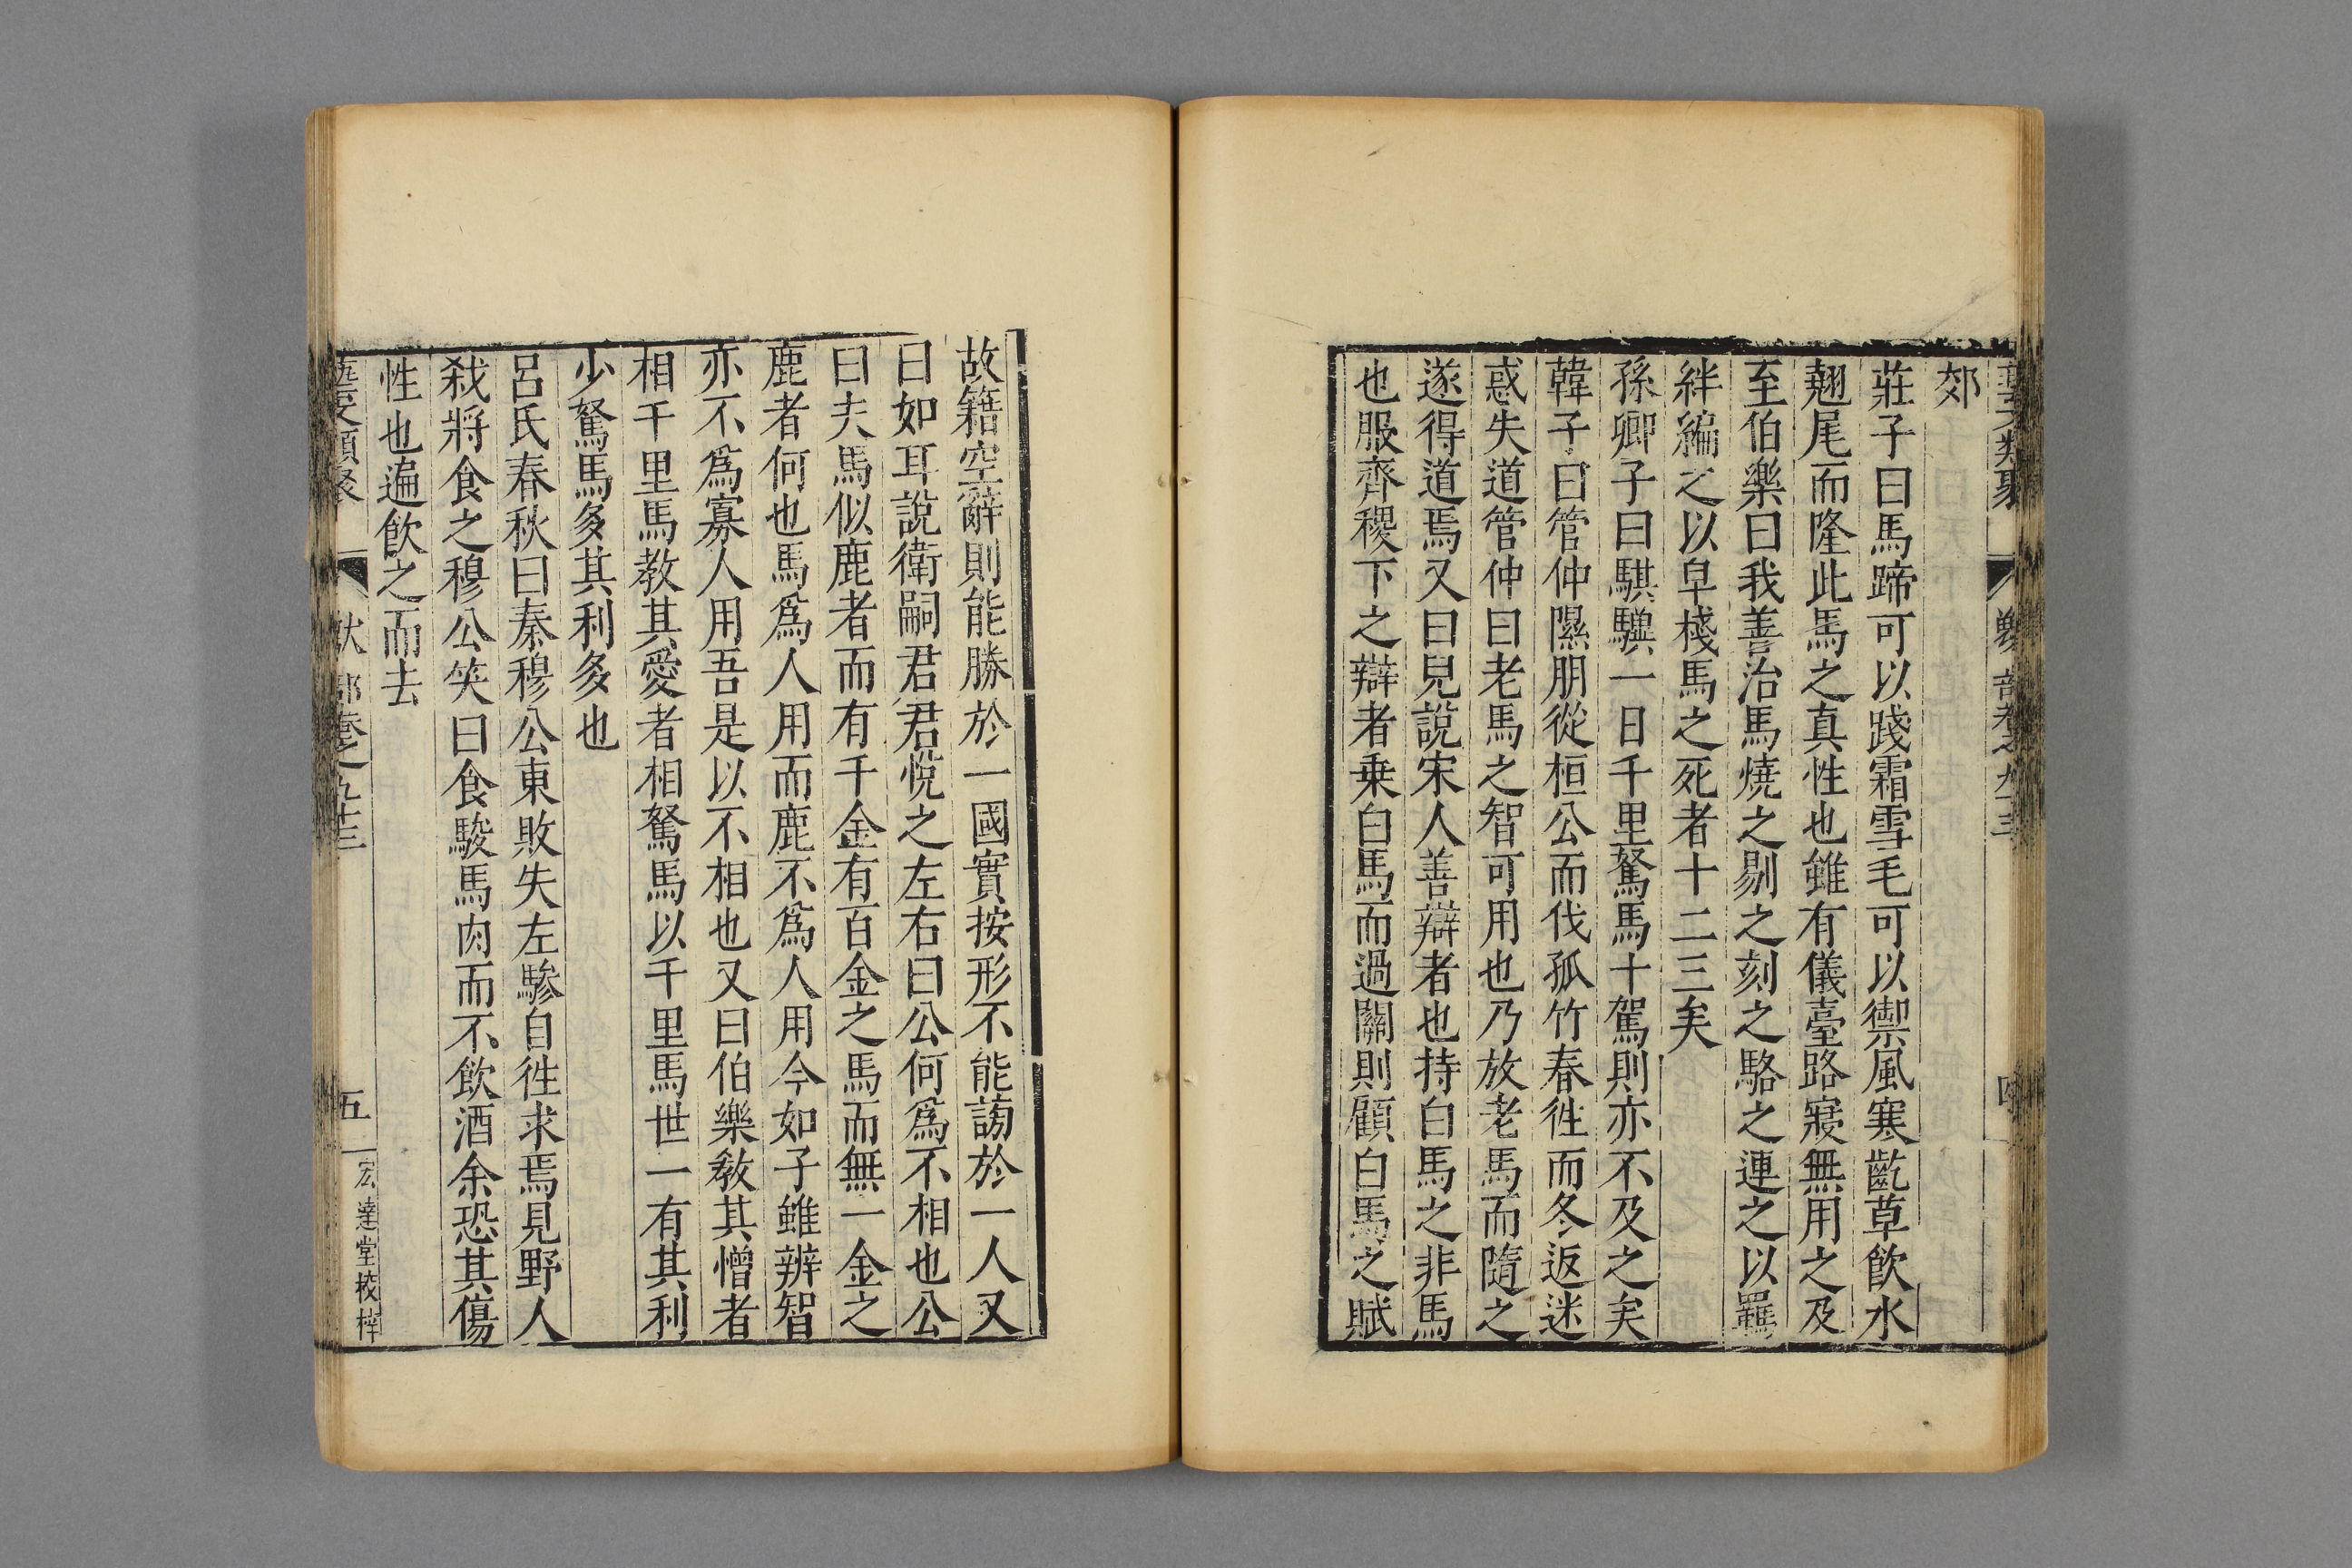 郊
莊子曰馬蹄可以踐霜雪毛可以禦風寒齕草飲水
翹尾而隆此馬之真性也雖有儀臺路寢無用之及
至伯樂曰我善治馬燒之剔之刻之駱之連之以羈
絆編之以皁棧馬之死者十二三矣
孫卿子曰騏驥一日千里駑馬十駕則亦不及之矣
韓子曰管仲隰朋從桓公而伐孤竹春徃而冬返迷
惑失道管仲曰老馬之智可用也乃放老馬而隨之
遂得道焉又曰兒說宋人善辯者也持白馬之非馬
也服齊稷下之辯者乗白馬而過關則顧白馬之賦
故籍空辭則能勝於一國實按形不能謗於一人又
曰如耳說衛嗣君君悅之左右曰公何爲不相也公
曰夫馬似鹿者而有千金有百金之馬而無一金之
鹿者何也馬爲人用而鹿不爲人用今如子雖辨智
亦不爲寡人用吾是以不相也又曰伯樂敎其憎者
相千里馬敎其愛者相駑馬以千里馬世一有其利
少駑馬多其利多也
呂氏春秋曰秦穆公東敗失左驂自徃求焉見野人
殺將食之穆公笑曰食駿馬肉而不飲酒余恐其傷
性也遍飲之而去
五
宏達堂校梓